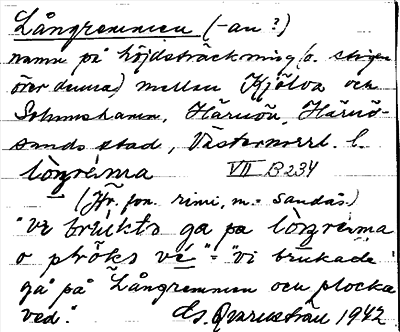 Långremmen (-an?)
namn på höjdsträckning (o. stigen
över denna) mellan Kjölva och
Solumshamn, Härnön, Härnö-
sands stad, Västernorrl. l.
lòŋrèma VII B 234
(Jfr. fon. rimi, m. = sandås.)
"ve brukto ga pa lòŋrèma
o plòks ve" = "vi brukade
gå på Långremmen och plocka
ved". Es. Qvarnström 1942